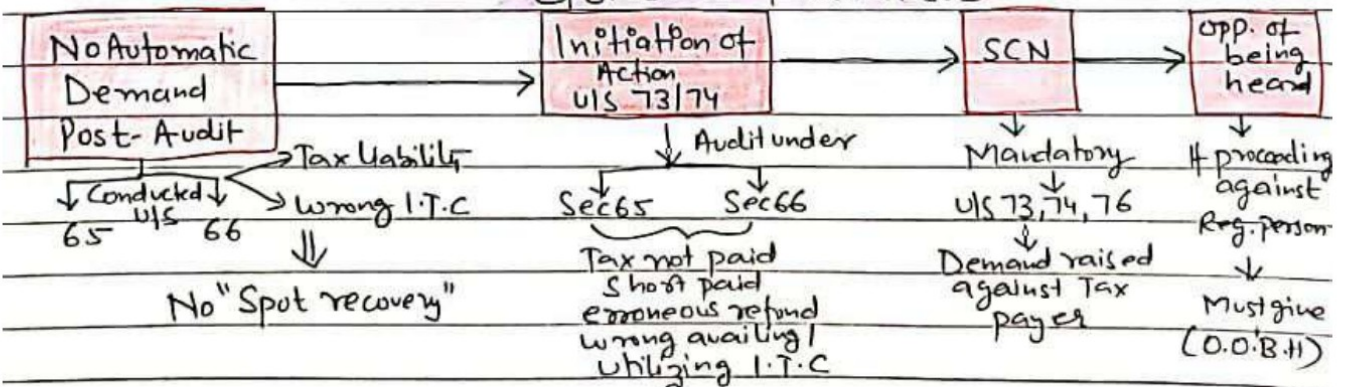 No Automatic
Demand
Post-Audit
Tax liability
Conducted
U/S
65 66
Wrong I.T.C
No "Spot recovery"
Initiation of
Action
U/S 73/74
Audit under
Sec65 Sec66
Tax not paid
Short paid
erroneous refund
wrong availing/
utilizing I.T.C
SCN
Mandatory
U/S 73, 74, 76
Demand raised
against Tax
payer
opp. of
being
heard
If proceeding
against
Reg. person
Must give
(O.O.B.H)